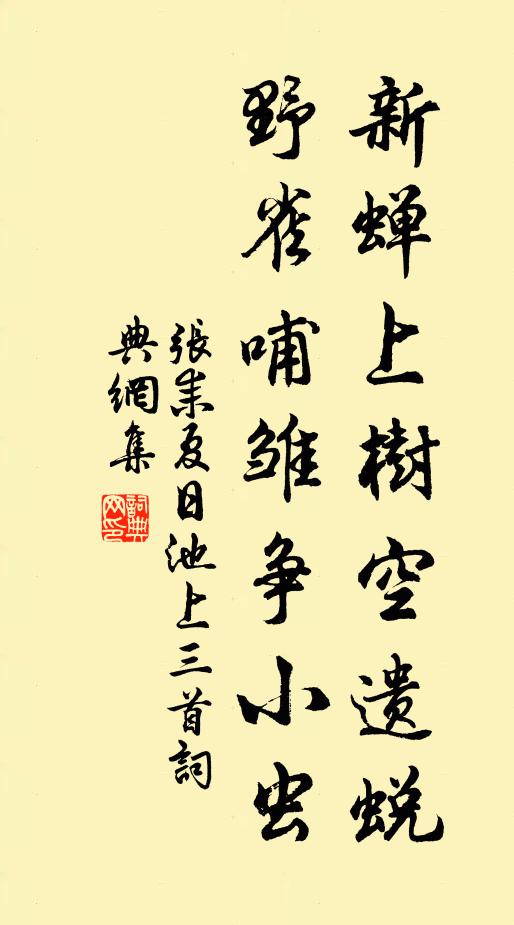 新蝉上樹空遺蜕
野雀哺雏争小虫
張耒夏日池上三首詞
典網集
詞典
网印